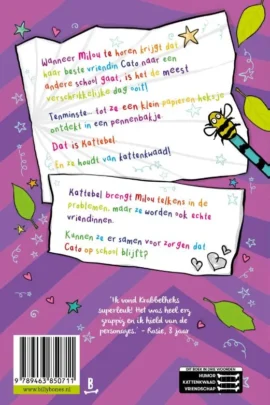 Wanneer Milou te horen krijgt dat
haar beste vriendin Cato naar een
andere school gaat, is het de meest
verschrikkelijke dag ooit!
Tenminste... tot ze een klein papieren heksje
ontdekt in een pennenbakje.
Dat is Kattebel.
En ze houdt van kattenkwaad!
Kattebel brengt Milou telkens in de
problemen, maar ze worden ook echte
vriendinnen.
Kunnen ze er samen voor zorgen dat
Cato op school blijft?
'Ik vond Krabbelheks
superleuk! Het was heel erg
grappig en ik hield van de
personages.' - Rosie, 8 jaar
9 789463 850711
www.billybones.nl
B
DIT BOEK IN DRIE WOORDEN:
HUMOR
KATTENKWAAD
VRIENDSCHAP